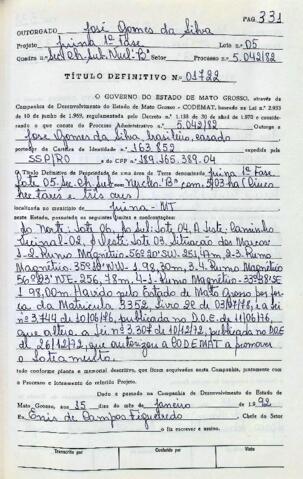 PAG. 331
OUTORGADO José Gomes da Silva
Projeto Juina 1ª Fase Lote n.º 05
Quadra nº Set. Ch. Sub. Nucl. "B" Processo n.º 5.042/82
TÍTULO DEFINITIVO N.º 01722
O GOVERNO DO ESTADO DE MATO GROSSO, através da
Companhia de Desenvolvimento do Estado de Mato Grosso - CODEMAT, baseado na Lei n.º 2.933
de 10 de junho de 1969, regulamentada pelo Decreto n.º 1.138 de 30 de abril de 1970 e consideran-
do o que consta do Processo Administrativo n.º 5.042/82 Outorga a
José Gomes da Silva brasileiro, casado
portador da Carteira de Identidade n.º 163.852 expedida pela
SSP/RO e do CPF n.º 189.165.389.04
o Título Definitivo de Propriedade de uma área de Terra denominada Juina 1ª Fase
Lote 05 - Set. Ch. Sub Núcleo "B" com 5,03 ha (Cinco
hectares e três ares)
localizada no município de Juina - MT
neste Estado, possuindo os seguintes limites e confrontações:
Ao Norte: Lote 06, Ao Sul: Lote 04, A Leste: Caminho
Vicinal-02, A Oeste: Lote 03. Situação dos Marcos
1-2. Rumo Magnético 56º SW. 251,47 m, 2-3. Rumo
Magnético NW - 198,30 m, 3-4. Rumo
Magnético NE - 256,78 m - 4-1. Rumo Magnético SE
198,00 m. Havido pelo Estado de Mato Grosso por for-
ça da Matrícula 5352, Livro 22 de 03/07/78, e Lei
nº 3.744 de 10/06/76, publicado no D.O.E. de 11/06/76,
que altera a Lei nº 3.307 de 10/12/72, publicado no DOE
de 26/12/72, que autorizou a CODEMAT a promover
o Loteamento.
tudo conforme planta e memorial descritivo, que ficam arquivados nesta Companhia, juntamente com
o Processo e loteamento do referido Projeto.
Dado e passado na Companhia de Desenvolvimento do Estado de
Mato Grosso, aos 15 dias do mês de Janeiro de 1992
Eu Enis de Campos Figueiredo Chefe do Setor
o fiz escrever e assino.
Transcrito por Conferido por Visto